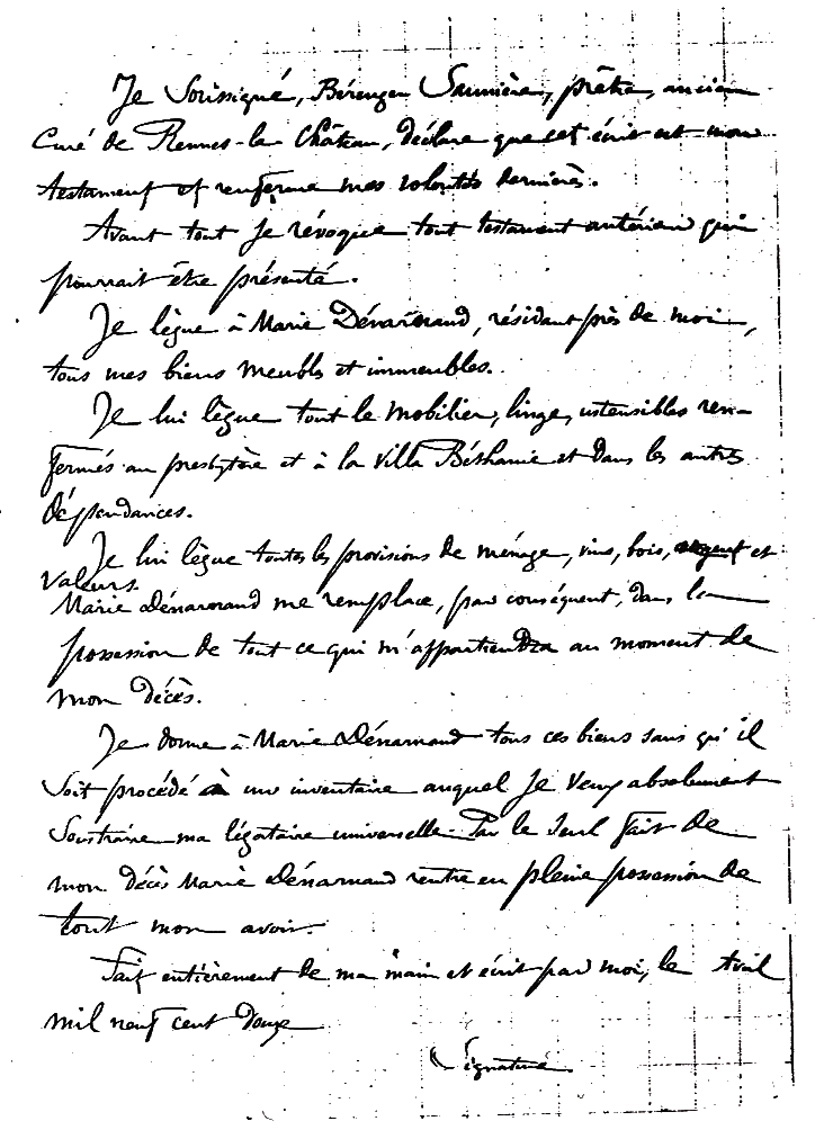 Je Soussigné, Bérenger Saunière, prêtre, ancien
Curé de Rennes-le-Château, déclare que cet écrit est mon
testament et renferme mes volontés dernières.
Avant tout je révoque tout testament antérieur qui
pourrait être présenté.
Je lègue à Marie Dénarnaud, résidant près de moi,
tous mes biens meubles et immeubles.
Je lui lègue tout le mobilier, linge, ustensibles ren-
fermés au presbytère et à la villa Béthanie et dans les autres
dépendances.
Je lui lègue toutes les provisions de ménage, vins, bois, argent et
valeurs.
Marie Dénarnaud me remplace, par conséquent, dans la
possession de tout ce qui m'appartiendra au moment de
mon décès.
Je donne à Marie Dénarnaud tous ces biens sans qu'il
soit procédé à un inventaire auquel je veux absolument
soustraire ma légataire universelle. Par le seul fait de
mon décès Marie Dénarnaud rentre en pleine possession de
tout mon avoir.
Fait entièrement de ma main et écrit par moi, le Avril
mil neuf cent douze
(Signature